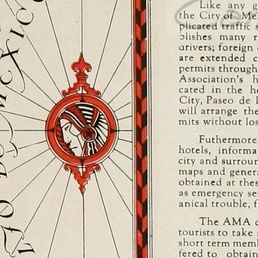 Like any
the City of Me
plicated traffic
plishes many r
drivers; foreign
are extended c
permits through
Association's h
cated in the he
City, Paseo de l
will arrange the
mits without los
Futhermore
hotels, informa
city and surrou
maps and gener
obtained at these
as emergency se
anical trouble, f
The AMA c
tourists to take
short term mem
fered to obtain
MEXICO